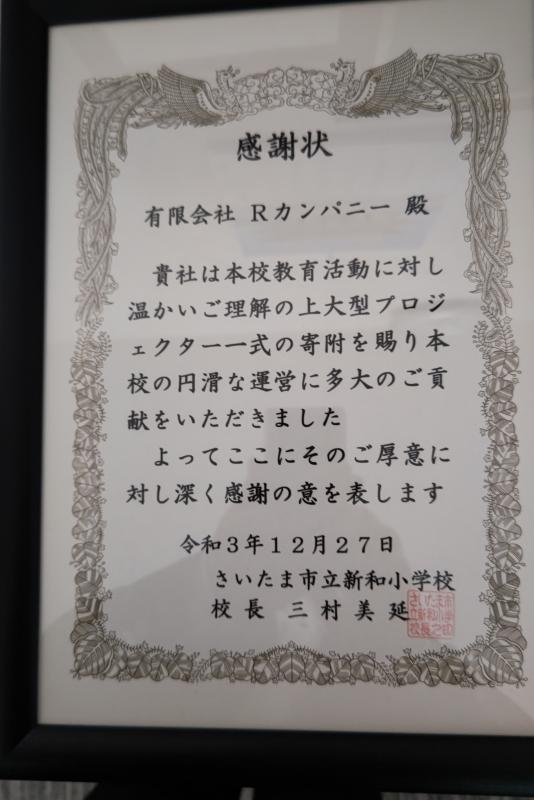 感謝状
有限会社 Rカンパニー 殿
貴社は本校教育活動に対し
温かいご理解の上大型プロジ
ェクター一式の寄附を賜り本
校の円滑な運営に多大のご貢
献をいただきました
よってここにそのご厚意に
対し深く感謝の意を表します
令和3年12月27日
さいたま市立新和小学校
校長 三村美延